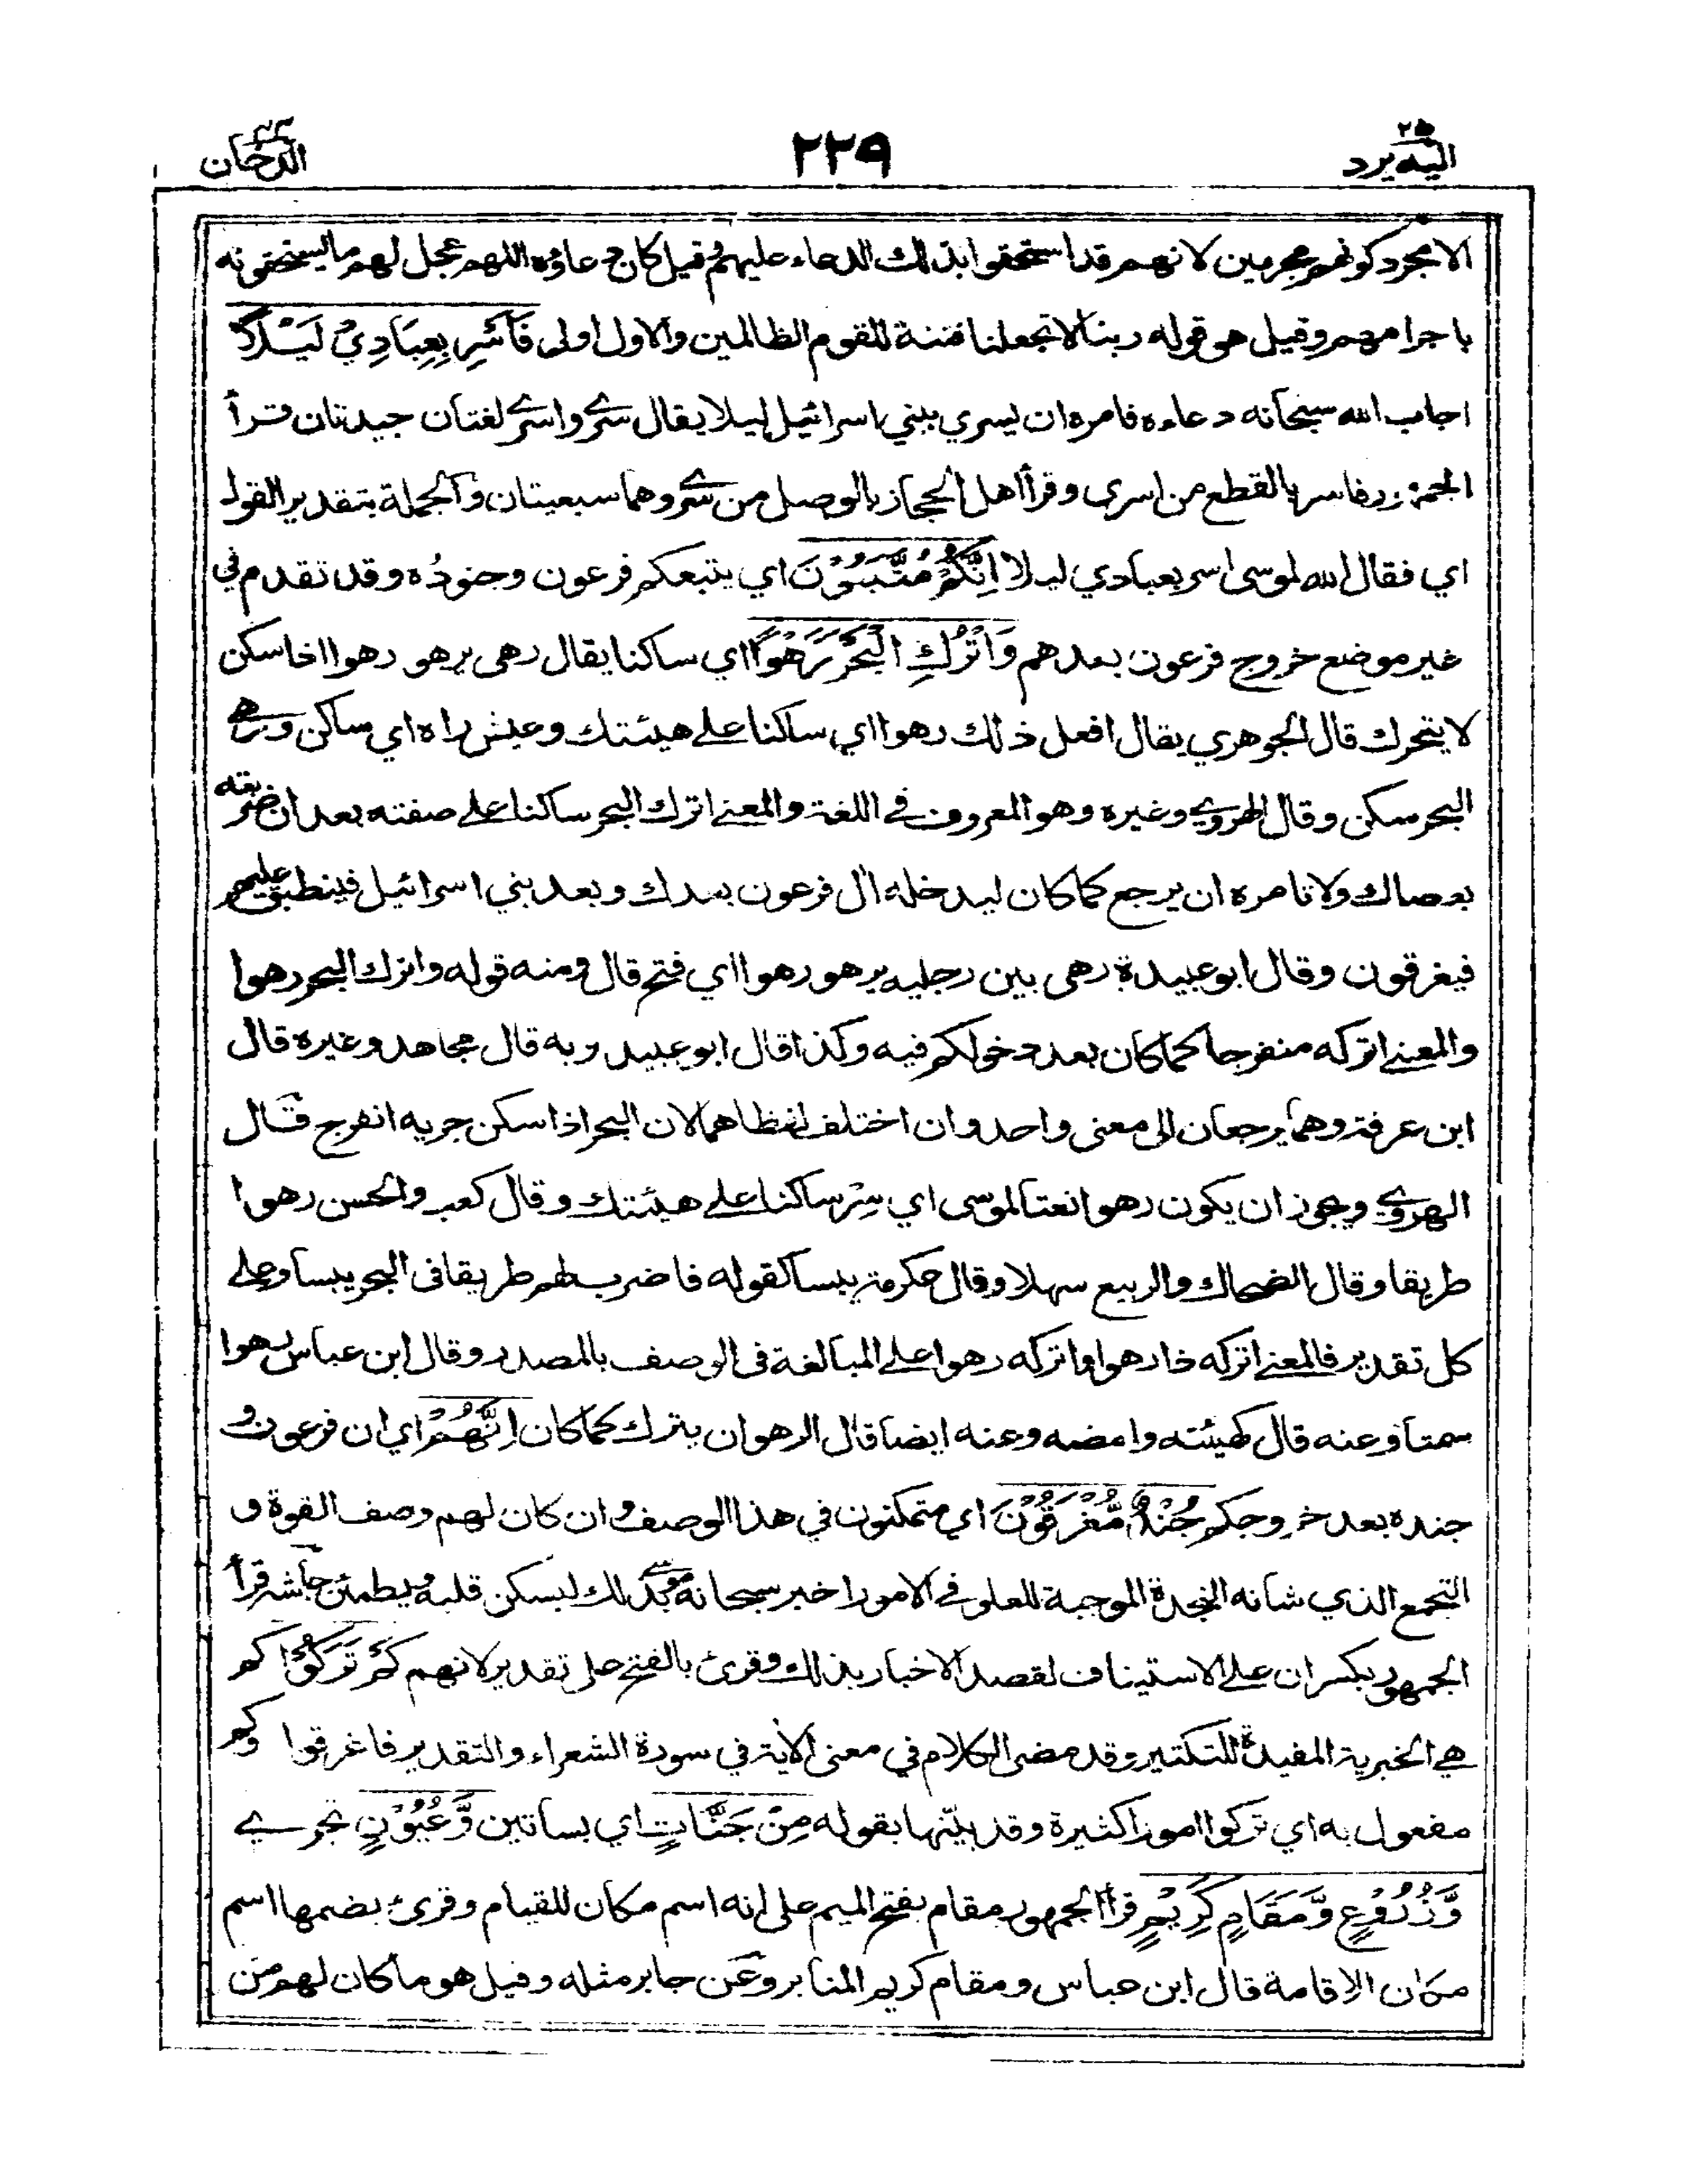 ٢٥
اليه يرد
٢٢٩
٤٤
الدخان
الا مجرد كونهم مجرمين لانهم قد استحقوا بذلك الدعاء عليهم وقيل كان دعاؤه اللهم عجل لهم ما يستحقونه
باجرامهم وقيل هو قوله ربنا لا تجعلنا فتنة للقوم الظالمين والاول اولى فَاَسْرِ بِعِبَادِيْ لَيْلًا
اجاب الله سبحانه دعاءه فامره ان يسري ببني اسرائيل ليلا يقال سرى واسرى لغتان جيدتان قرأ
الجمهور فاسر بالقطع من اسرى وقرأ اهل الحجاز بالوصل من سرى وهما سبعيتان والجملة بتقدير القول
اي فقال الله لموسى اسر بعبادي ليلا اِنَّكُمْ مُتَّبَعُوْنَ اي يتبعكم فرعون وجنوده وقد تقدم في
غير موضع خروج فرعون بعدهم وَاتْرُكِ الْبَحْرَ رَهْوًا اي ساكنا يقال رهى يرهو رهوا اذا سكن
لا يتحرك قال الجوهري يقال افعل ذلك رهوا اي ساكنا على هيئتك وعيش راه اي ساكن ورهى
البحر سكن وقال الهروي وغيره وهو المعروف في اللغة والمعنى اترك البحر ساكنا على صفته بعد ان ضربته
بعصاك ولا تامره ان يرجع كما كان ليدخله آل فرعون بعدك وبعد بني اسرائيل فينطبق عليهم
فيغرقون وقال ابو عبيدة رهى بين رجليه يرهو رهوا اي فتح قال ومنه قوله واترك البحر رهوا
والمعنى اتركه منفرجا كما كان بعد دخولكم فيه وكذا قال ابو عبيد وبه قال مجاهد وغيره قال
ابن عرفة وهما يرجعان الى معنى واحد وان اختلف لفظاهما لان البحر اذا سكن جريه انفرج قال
الهروي ويجوز ان يكون رهوا نعتا لموسى اي سِرْ ساكنا على هيئتك وقال كعب والحسن رهوا
طريقا وقال الضحاك والربيع سهلا وقال عكرمة يبسا كقوله فاضرب لهم طريقا في البحر يبسا وعلى
كل تقدير فالمعنى اتركه ذا رهوا او اتركه رهوا على المبالغة في الوصف بالمصدر وقال ابن عباس رهوا
سمتا وعنه قال كهيئته وامضه وعنه ايضا قال الرهو ان يترك كما كان اِنَّهُمْ اي ان فرعون و
جنده بعد خروجكم جُنْدٌ مُّغْرَقُوْنَ اي متمكنون في هذا الوصف وان كان لهم وصف القوة و
التجمع الذي شانه النجدة الموجبة للعلو في الامور اخبر سبحانه موسى بذلك ليسكن قلبه ويطمئن جأشه قرأ
الجمهور بكسر ان على الاستيناف لقصد الاخبار بذلك وقرئ بالفتح على تقدير لانهم كَمْ تَرَكُوْا كم
هي الخبرية المفيدة للتكثير وقد مضى الكلام في معنى الآية في سورة الشعراء والتقدير فاغرقوا وكم
مفعول به اي تركوا امورا كثيرة وقد بيّنها بقوله مِنْ جَنَّاتٍ اي بساتين وَّعُيُوْنٍ تجري
وَّزُرُوْعٍ وَّمَقَامٍ كَرِيْمٍ قرأ الجمهور مقام بفتح الميم على انه اسم مكان للقيام وقرئ بضمها اسم
مكان الاقامة قال ابن عباس ومقام كريم المنابر وعن جابر مثله وقيل هو ما كان لهم من